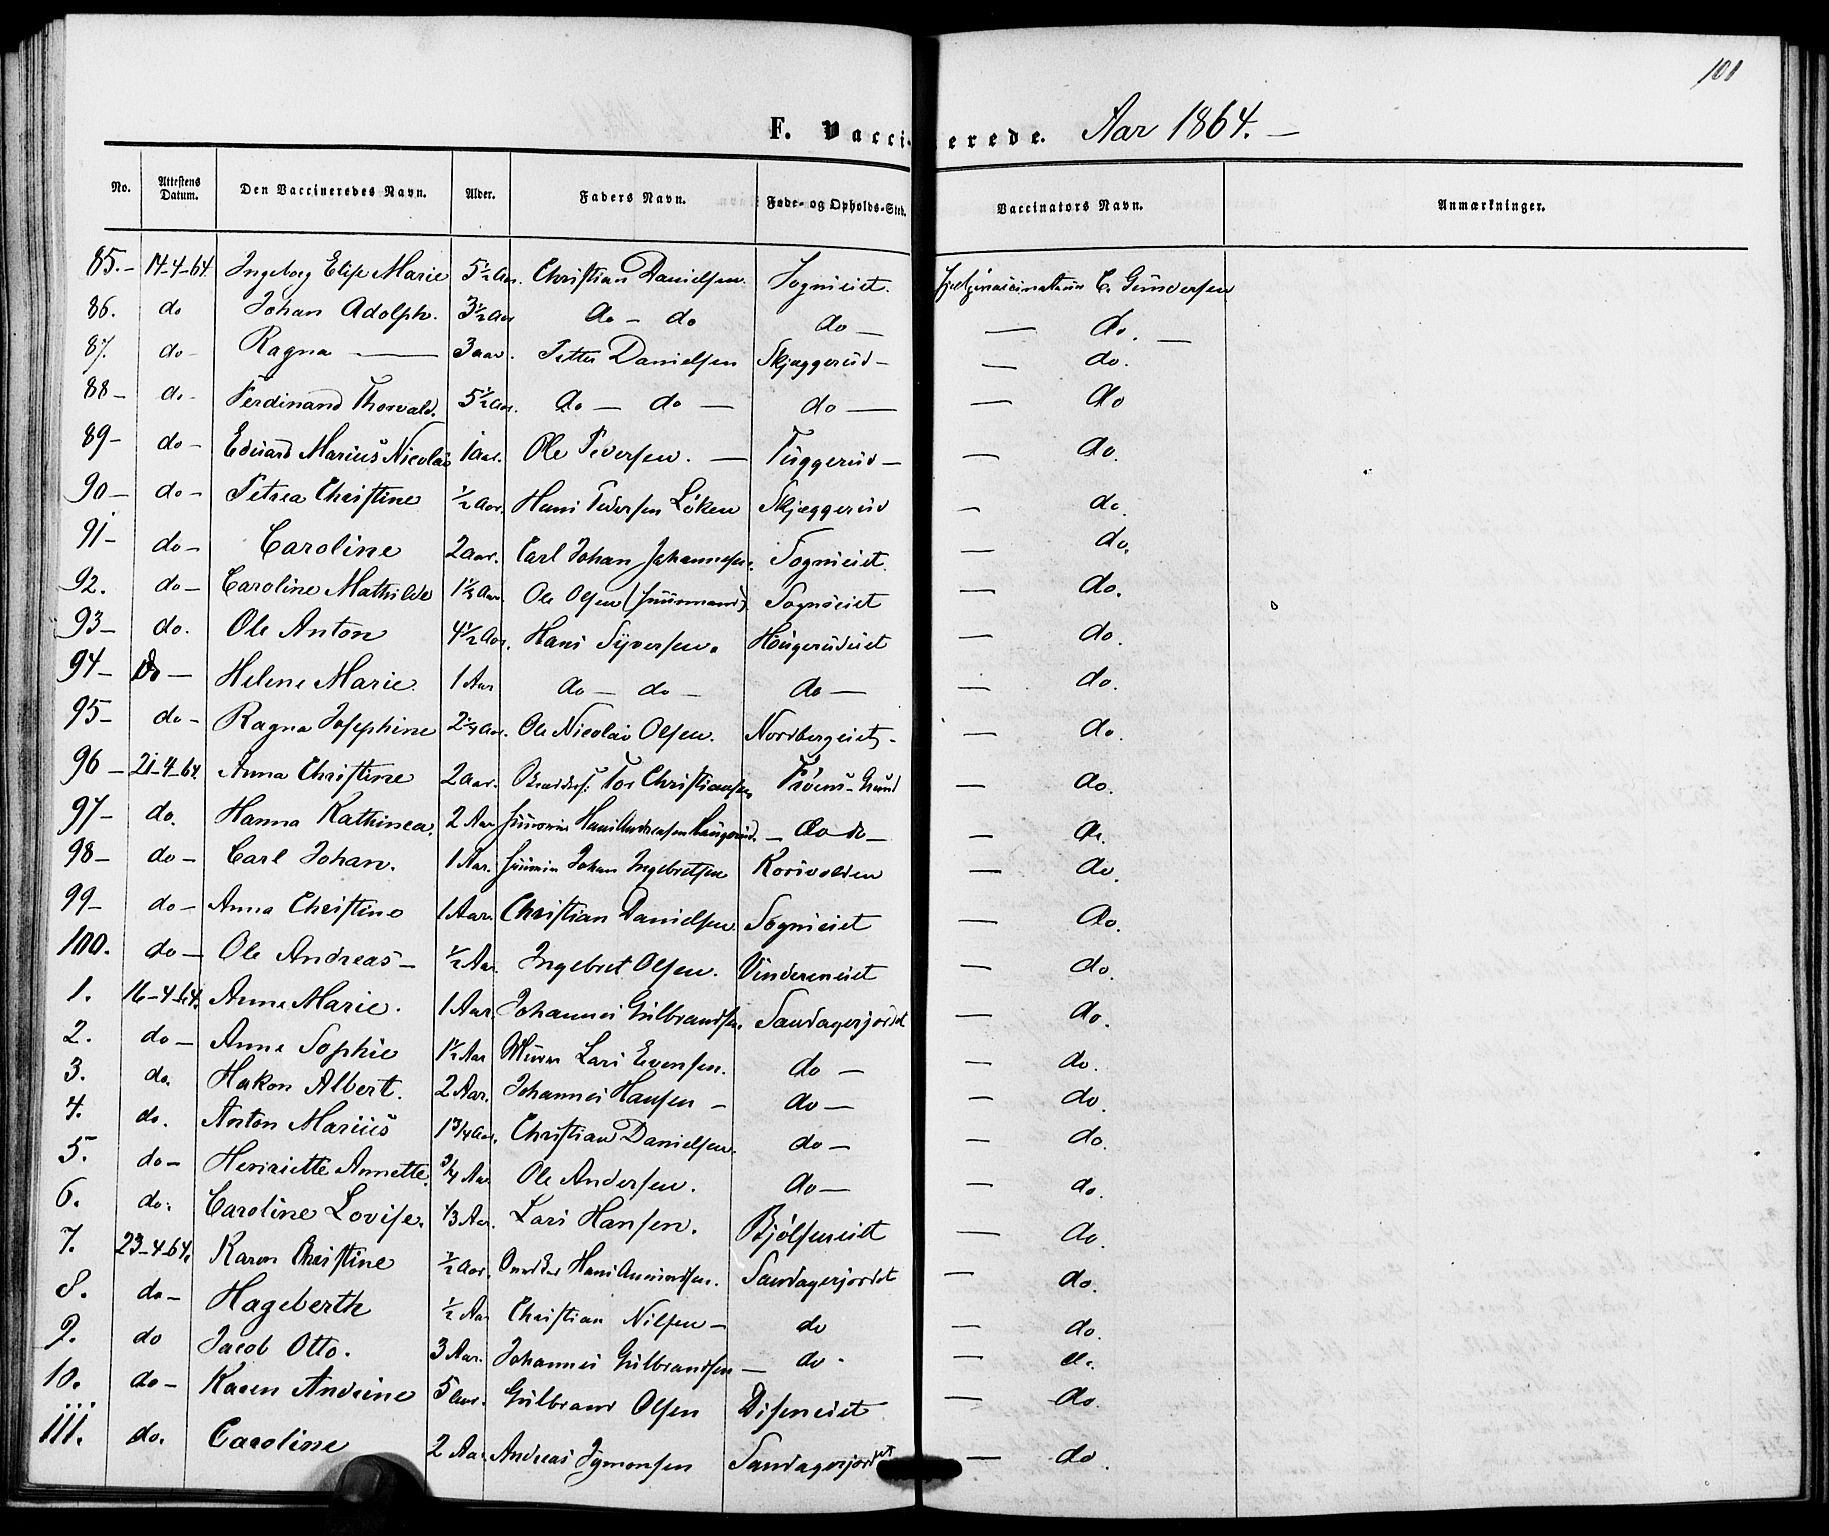 101
F. Vaccinerede. Aar 1864.—
No. Attestens Datum. Den Vaccineredes Navn. Alder. Faders Navn. Føde- og Opholds-Sted. Vaccinators Navn. Anmærkninger.
85.— 14-4-64 Ingeborg Elise Marie 5½ Aar. Christian Danielsen. Sognseiet. Hjelpevaccinateur C. Gundersen
86. do Johan Adolph. 3½ Aar do — do do — — do. —
87. do — Ragna — 3 aar. Petter Danielsen Skjæggerud — — do.
88 — do — Ferdinand Thorvald. 5½ Aar. do — do — do — — do
89 — do — Eduard Marius Nicolai 1 aar. Ole Pedersen. — Tuggerud — — do.
90 — do — Petrea Christine ½ Aar. Hans Pedersen Løken Skjæggerud — do.
91 — do — Caroline 2 aar. Carl Johan Johannesen. Sognseiet. — do.
92. do — Caroline Mathilde 1½ Aar. Ole Olsen (Huusmand). Sognseiet — do.
93 — do. Ole Anton 4½ Aar. Hans Syversen. Hougerudeiet — do.
94 — do — Helene Marie. 1 Aar do — do — do — — do.
95 — do — Ragna Josephine 2¼ Aar. Ole Nicolai Olsen. Nordbergeiet. — do.
96 — 21-4-64. Anna Christine 2 aar. Tor Christiansen Frøens-Grund — do.
97 — do. Hanna Kathinea. 2 Aar Hans Andreasen Haugerud. — do do — — do.
98 — do — Carl Johan. 1 Aar. Johan Ingebretsen Korsvolden — do.
99 — do — Anna Christine 1 Aar. Christian Danielsen. Sognseiet — do.
100. do — Ole Andreas — ½ Aar. Ingebret Olsen. Vindereneiet — do.
1. 16-4-64. Anne Marie. 1 Aar. Johannes Gulbrandsen. Sandagerjordet — do.
2. do — Anne Sophie 1½ Aar Murer Lars Evensen. do — — do.
3. do. Hakon Albert. 2 Aar. Johannes Hansen — do — — do.
4. do. Anton Marius 1¾ Aar. Christian Danielsen. do — — do.
5. do — Henriette Annette. ¾ Aar Ole Andersen. do — — do.
6. do. Caroline Lovise. ⅓ Aar. Lars Hansen. Bjølseneiet — do.
7. 23-4-64. Karen Christine ½ Aar. Hans Amundsen. Sandagerjordet — do.
8. do — Hageberth ½ Aar Christian Nilsen — do — do.
9. do Jacob Otto. 3 Aar. Johannes Gulbrandsen — do. — do.
10. do — Karen Andrine 5 aar. Gulbrand Olsen Diseneiet — do.
111. do. Caroline 2 Aar. Andreas Symonsen Sandagerjordet — do.